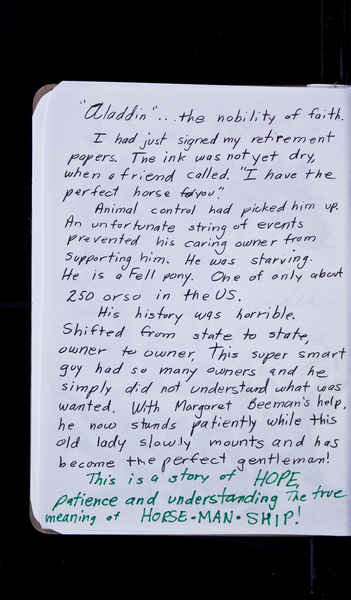 "Aladdin"... the nobility of faith.
I had just signed my retirement
papers. The ink was not yet dry,
when a friend called. "I have the
perfect horse for you".
Animal control had picked him up.
An unfortunate string of events
prevented his caring owner from
supporting him. He was starving.
He is a Fell pony. One of only about
250 or so in the US.
His history was horrible.
Shifted from state to state,
owner to owner, This super smart
guy had so many owners and he
simply did not understand what was
wanted. With Margaret Beeman's help,
he now stands patiently while this
old lady slowly mounts and has
become the perfect gentleman!
This is a story of HOPE,
patience and understanding The true
meaning of HORSE-MAN-SHIP!